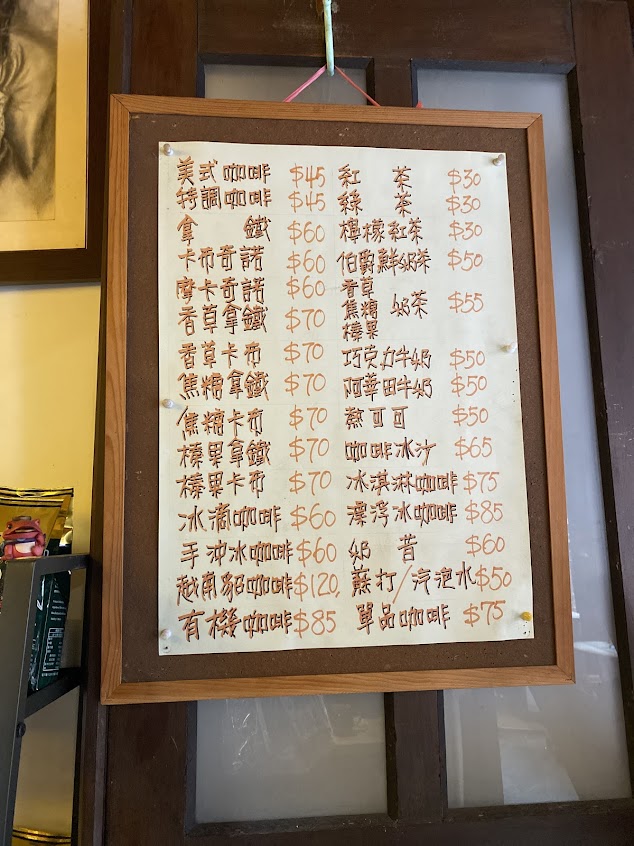 美式咖啡 $45
特調咖啡 $45
拿 鐵 $60
卡布奇諾 $60
摩卡奇諾 $60
香草拿鐵 $70
香草卡布 $70
焦糖拿鐵 $70
焦糖卡布 $70
榛果拿鐵 $70
榛果卡布 $70
冰滴咖啡 $60
手沖冰咖啡 $60
越南貂咖啡 $120,
有機咖啡 $85
紅 茶 $30
綠 茶 $30
檸檬紅茶 $30
伯爵鮮奶茶 $50
香草
焦糖 奶茶 $55
榛果
巧克力牛奶 $50
阿華田牛奶 $50
熱可可 $50
咖啡冰沙 $65
冰淇淋咖啡 $75
漂浮冰咖啡 $85
奶 昔 $60
蘇打/汽泡水 $50
單品咖啡 $75